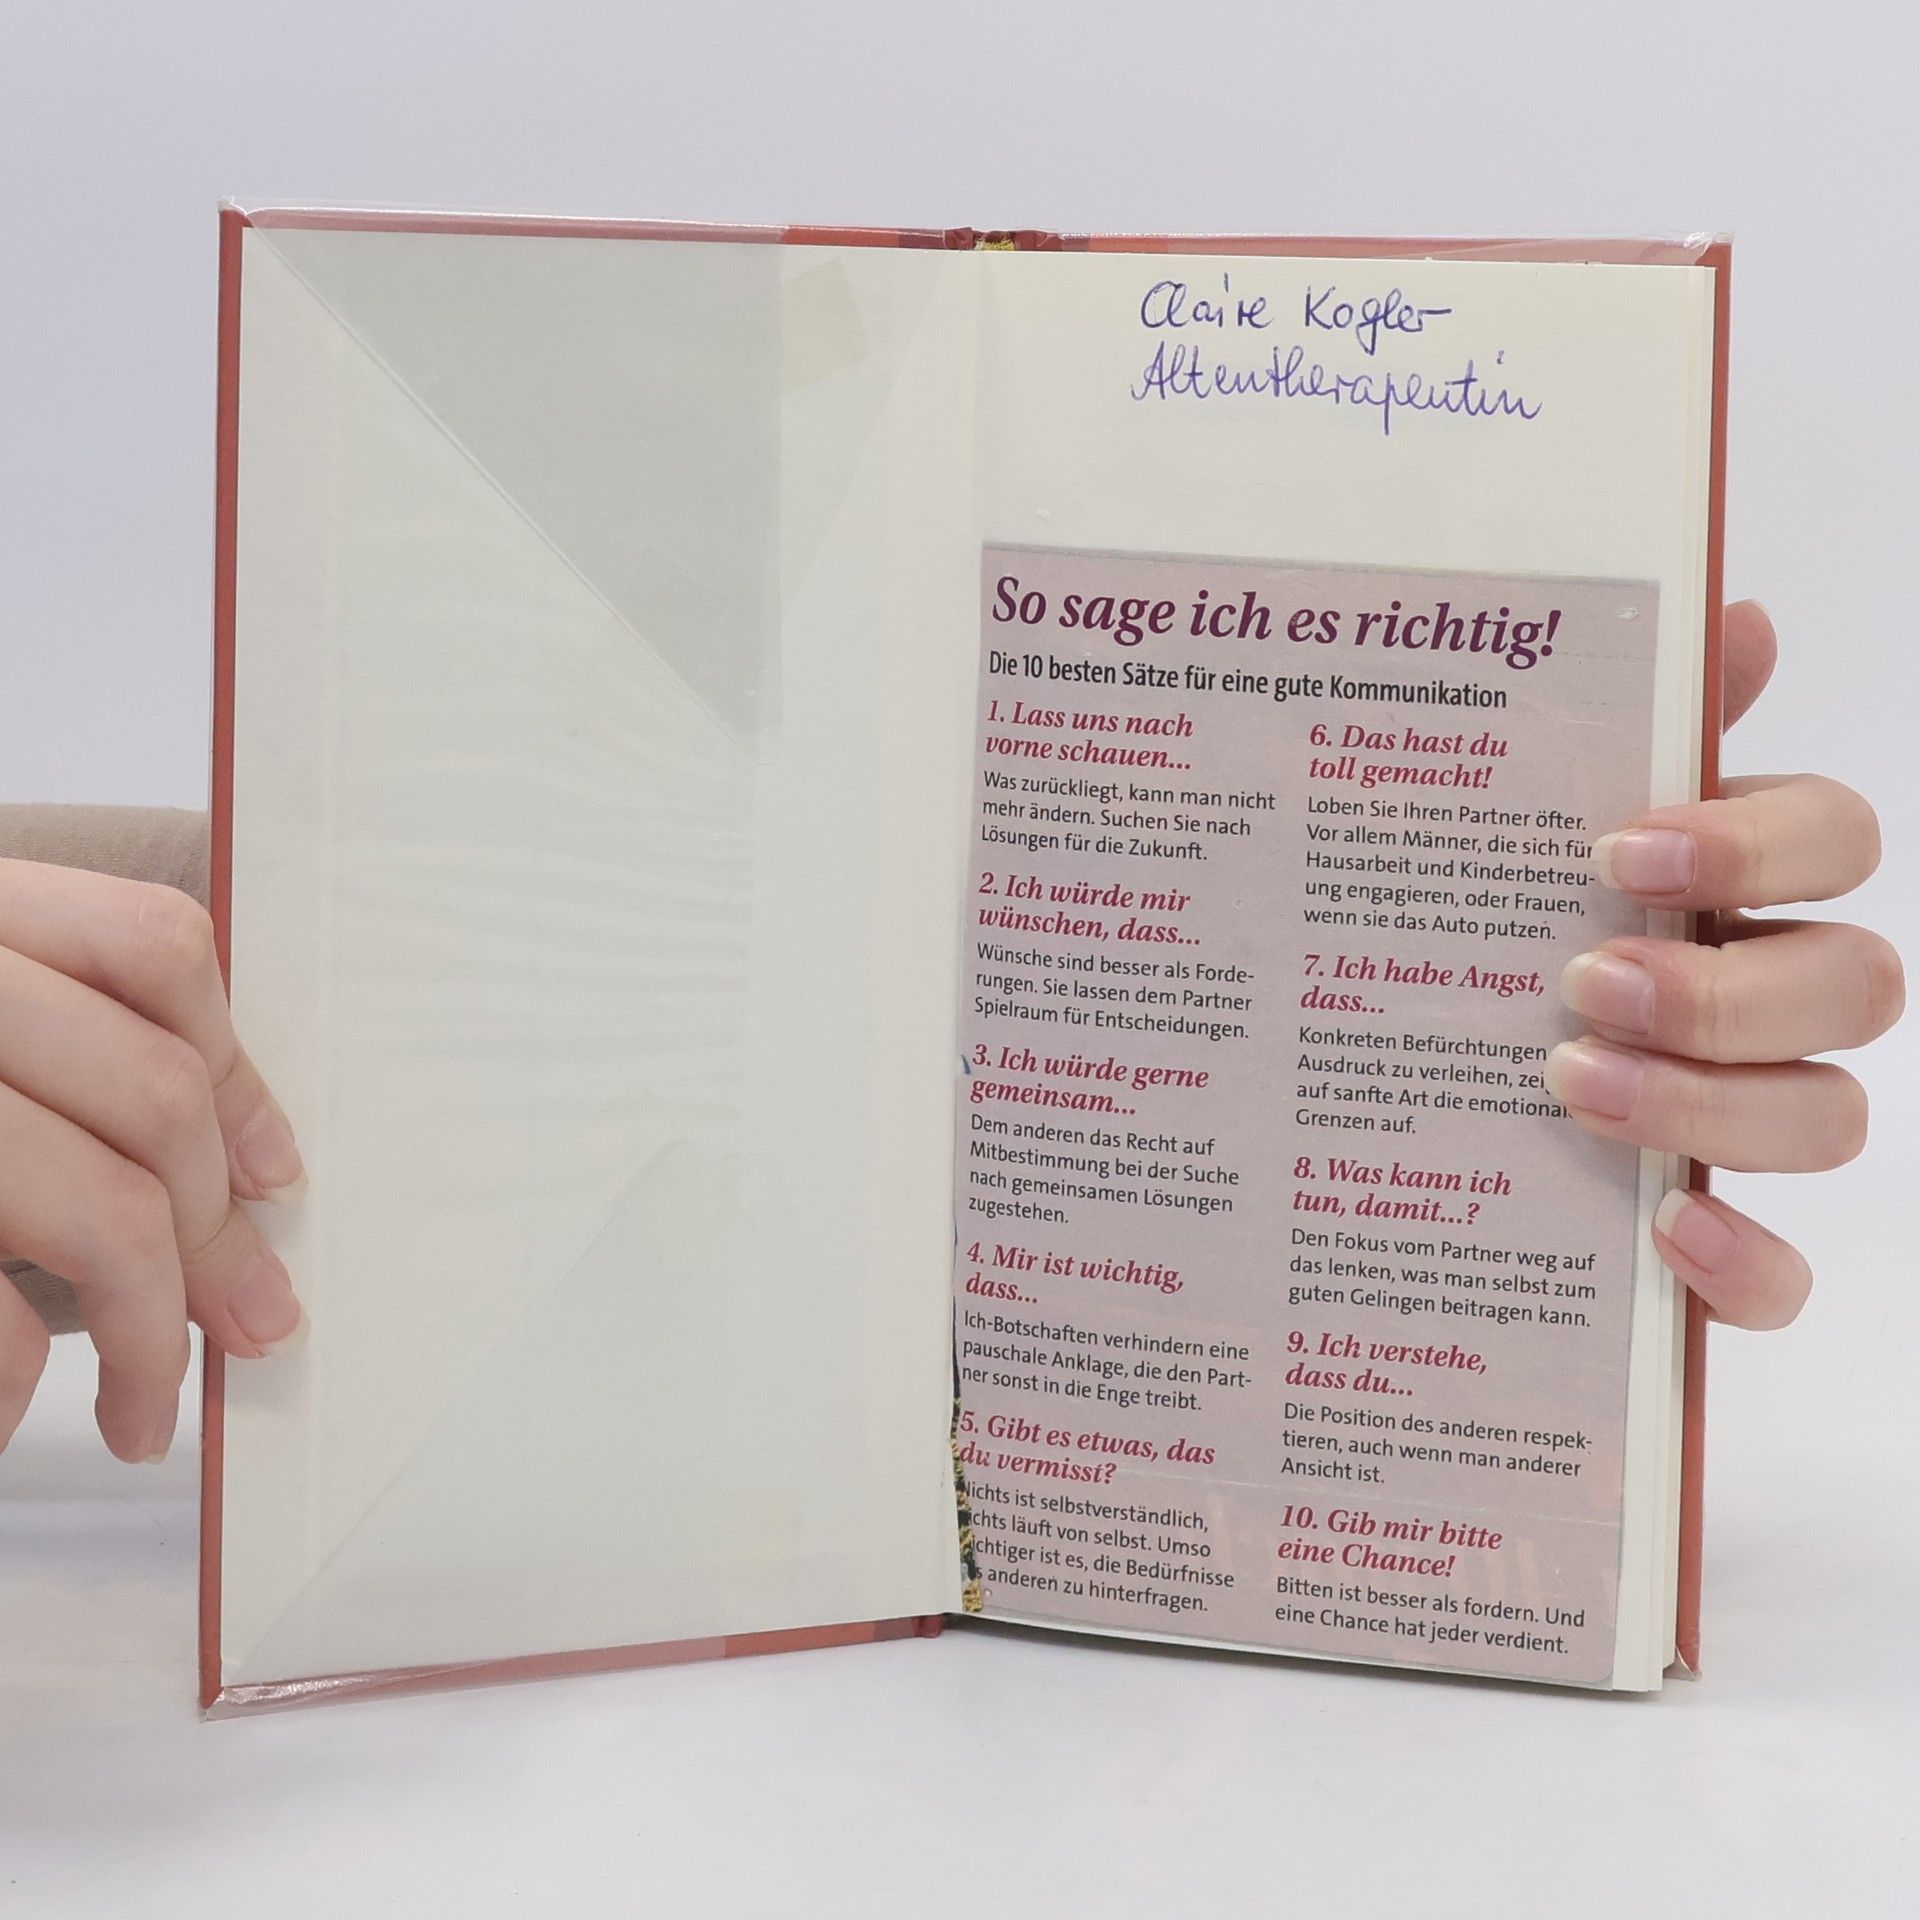 Claire Kogler
Altentherapeutin
So sage ich es richtig!
Die 10 besten Sätze für eine gute Kommunikation
1. Lass uns nach
vorne schauen...
Was zurückliegt, kann man nicht
mehr ändern. Suchen Sie nach
Lösungen für die Zukunft.
2. Ich würde mir
wünschen, dass...
Wünsche sind besser als Forde-
rungen. Sie lassen dem Partner
Spielraum für Entscheidungen.
3. Ich würde gerne
gemeinsam...
Dem anderen das Recht auf
Mitbestimmung bei der Suche
nach gemeinsamen Lösungen
zugestehen.
4. Mir ist wichtig,
dass...
Ich-Botschaften verhindern eine
pauschale Anklage, die den Part-
ner sonst in die Enge treibt.
5. Gibt es etwas, das
du vermisst?
ichts ist selbstverständlich,
chts läuft von selbst. Umso
chtiger ist es, die Bedürfnisse
s anderen zu hinterfragen.
6. Das hast du
toll gemacht!
Loben Sie Ihren Partner öfter.
Vor allem Männer, die sich für
Hausarbeit und Kinderbetreu-
ung engagieren, oder Frauen,
wenn sie das Auto putzen.
7. Ich habe Angst,
dass...
Konkreten Befürchtungen
Ausdruck zu verleihen, zei
auf sanfte Art die emotional
Grenzen auf.
8. Was kann ich
tun, damit...?
Den Fokus vom Partner weg auf
das lenken, was man selbst zum
guten Gelingen beitragen kann.
9. Ich verstehe,
dass du...
Die Position des anderen respek-
tieren, auch wenn man anderer
Ansicht ist.
10. Gib mir bitte
eine Chance!
Bitten ist besser als fordern. Und
eine Chance hat jeder verdient.